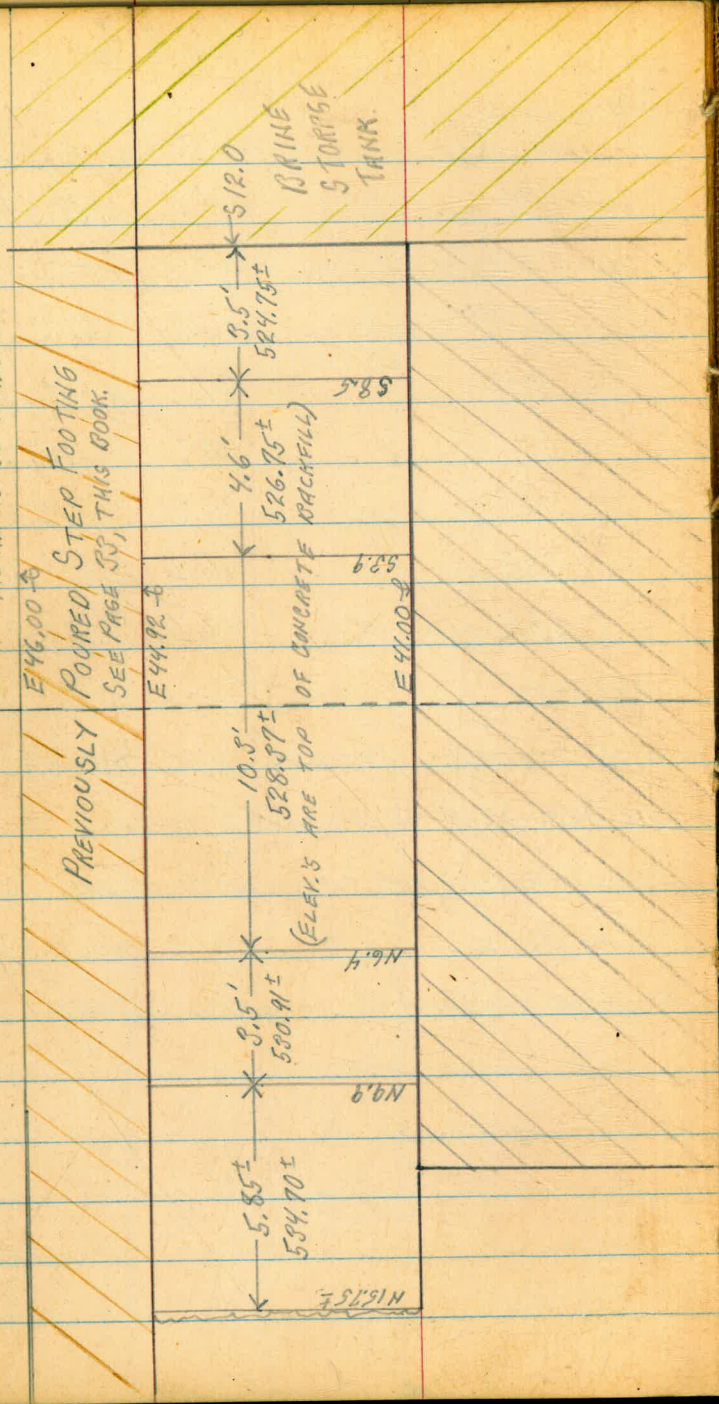 E 46.00
PREVIOUSLY POURED STEP FOOTING
SEE PAGE 35, THIS BOOK.
E 44.92
5.85'±
534.70±
3.5'
530.91±
10.3'
528.39±
4.6'
526.75±
3.5'
524.75±
S12.0
(ELEV.'S ARE TOP OF CONCRETE BACKFILL)
N15.75±
N9.9
N6.4
S3.9
S8.5
E 41.00
BRINE
STORAGE
TANK.